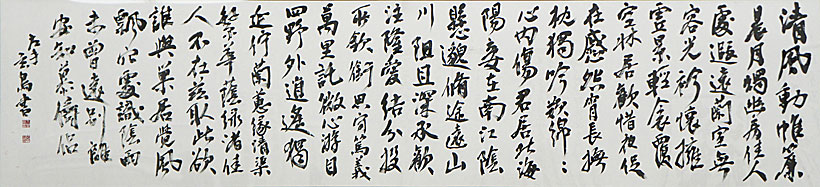 清風動帷簾
晨月燭幽房佳人
處遐遠蘭室無
容光衿懷擁
靈景輕衾覆
空牀居歡惜夜促
在慼怨宵長撫
枕獨吟歎綿〻
心內傷君居北海
陽妾在南江陰
懸邈脩途遠山
川阻且深承歡
注隆愛結分投
所欽銜恩守篤義
萬里託微心游目
四野外逍遙獨
延佇蘭蕙緣清渠
繁華蔭綠渚佳
人不在茲取此欲
誰與巢居覺風
飄穴處識陰雨
未曾遠別離
安知慕儔侶